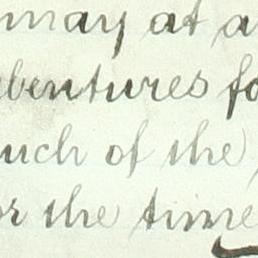 may at a
bentures fo
uch of the
or the time